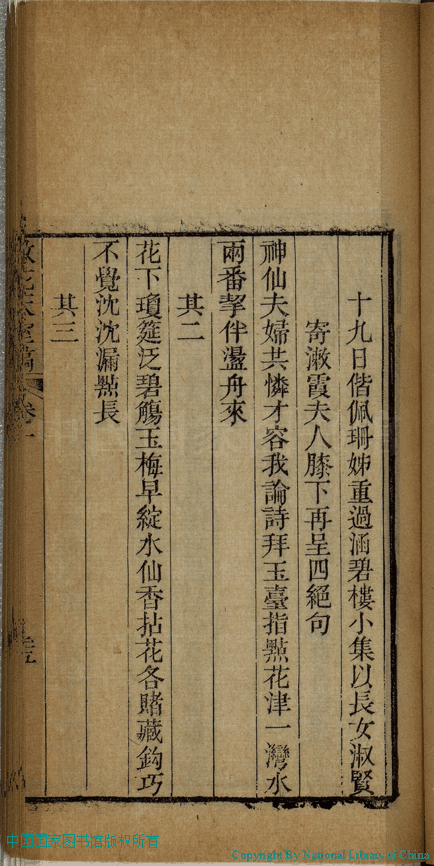 十九日偕佩珊姊重過涵碧樓小集以長女淑賢
寄漱霞夫人膝下再呈四絕句
神仙夫婦共憐才容我論詩拜玉臺指點花津一灣水
兩番挈伴盪舟來
其二
花下瓊筵泛碧觴玉梅早綻水仙香拈花各賭藏鈎巧
不覺沈沈漏點長
其三
花天室稿
卷一
中国国家图书馆版权所有
Copyright By National Library of China